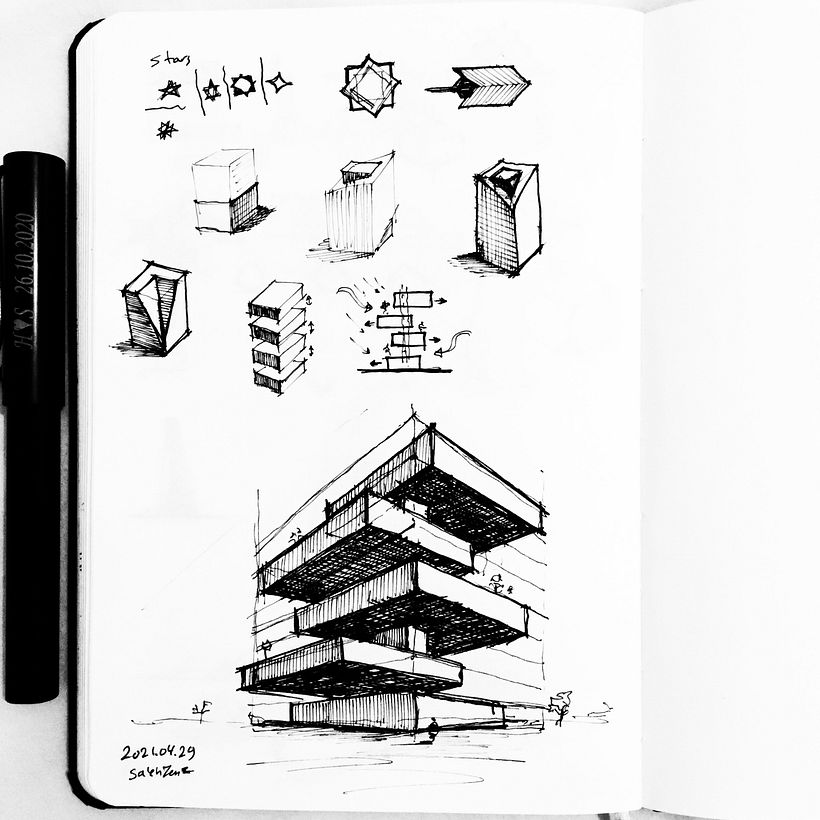 stars
H♥S 26.10.2020
2021.04.29